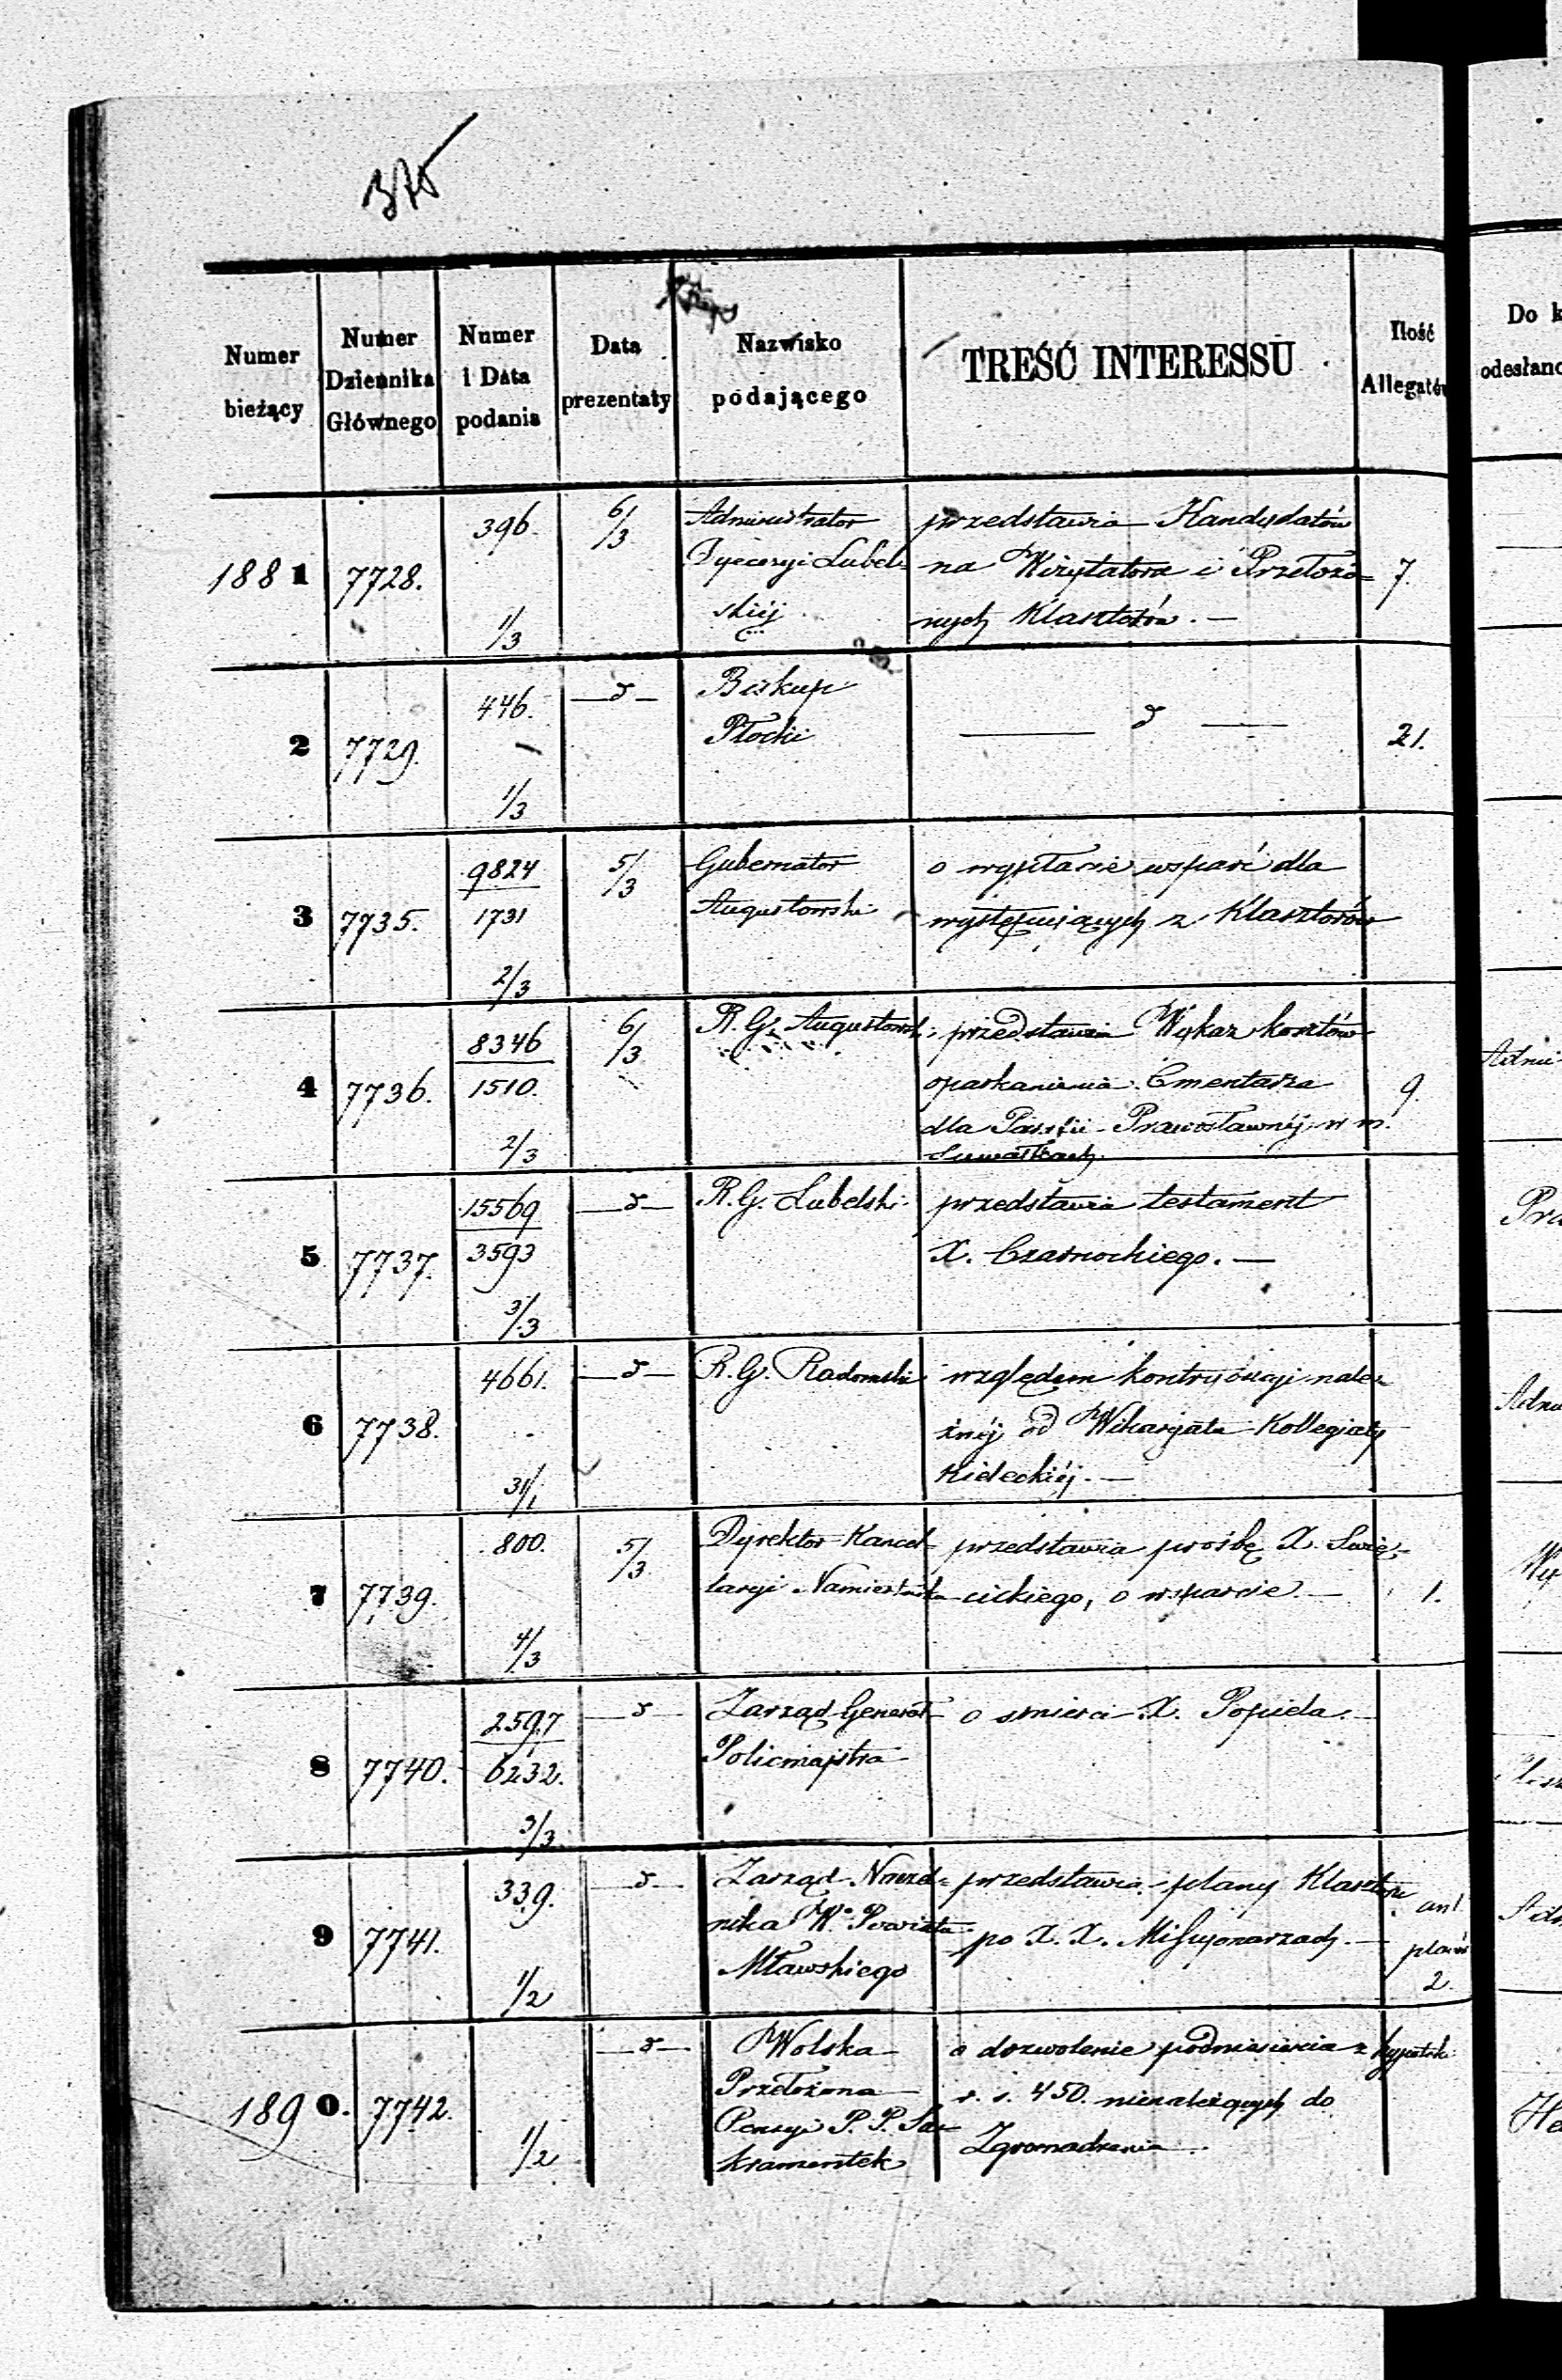 375
Numer bieżący
Numer Dziennika Głównego
Numer i Data podania
Data prezentaty
Nazwisko podającego
TREŚĆ INTERESSU
Ilość Allegatów
Do k
odesłano
1881 7728. 396. 1/3 6/3
Administrator
Dyecezyi Lubel=
skiéj
przedstawia Kandydatów
na Wizytatora i Przełożo=
nych Klasztorów. —
7.
2 7729. 446. 1/3 — d —
Biskup
Płocki
— d —
21.
3 7735. 9824
1731
2/3
5/3
Gubernator
Augustowski
o wypłacie wsparć dla
występujących z Klasztorów
4 7736. 8346
1510.
2/3
6/3
R. G. Augustowski
przedstawia Wykaz kosztów
oparkanienia Cmentarza
dla Parafii Prawosławnéj w m.
Suwałkach
9.
5 7737. 15569
3593
3/3
— d —
R. G. Lubelski
przedstawia testament
X. Czarnockiego. —
6 7738. 4661.
31/1
— d —
R. G. Radomski
względem kontrybucyi nale=
żnéj od Wikaryata Kollegiaty
Kieleckiéj. —
7 7739. 800.
4/3
5/3
Dyrektor Kancel=
laryi Namiestnika
przedstawia prośbę X. Świę=
cickiego, o wsparcie. —
1.
8 7740. 2597
6232.
3/3
— d —
Zarząd Generał
Policmajstra
o śmierci X. Popiela. —
9 7741. 339.
1/2
— d —
Zarząd Naczel=
nika W. Powiatu
Mławskiego
przedstawia plany Klasztoru
po X. X. Missyonarzach. —
planów
2.
1890. 7742.
1/2
— d —
Wolska
Przełożona
Pensyi P. P. Sa=
kramentek
o dozwolenie podniesienia z hypotek
r. s. 450. nienależących do
Zgromadzenia
Pra
Wy